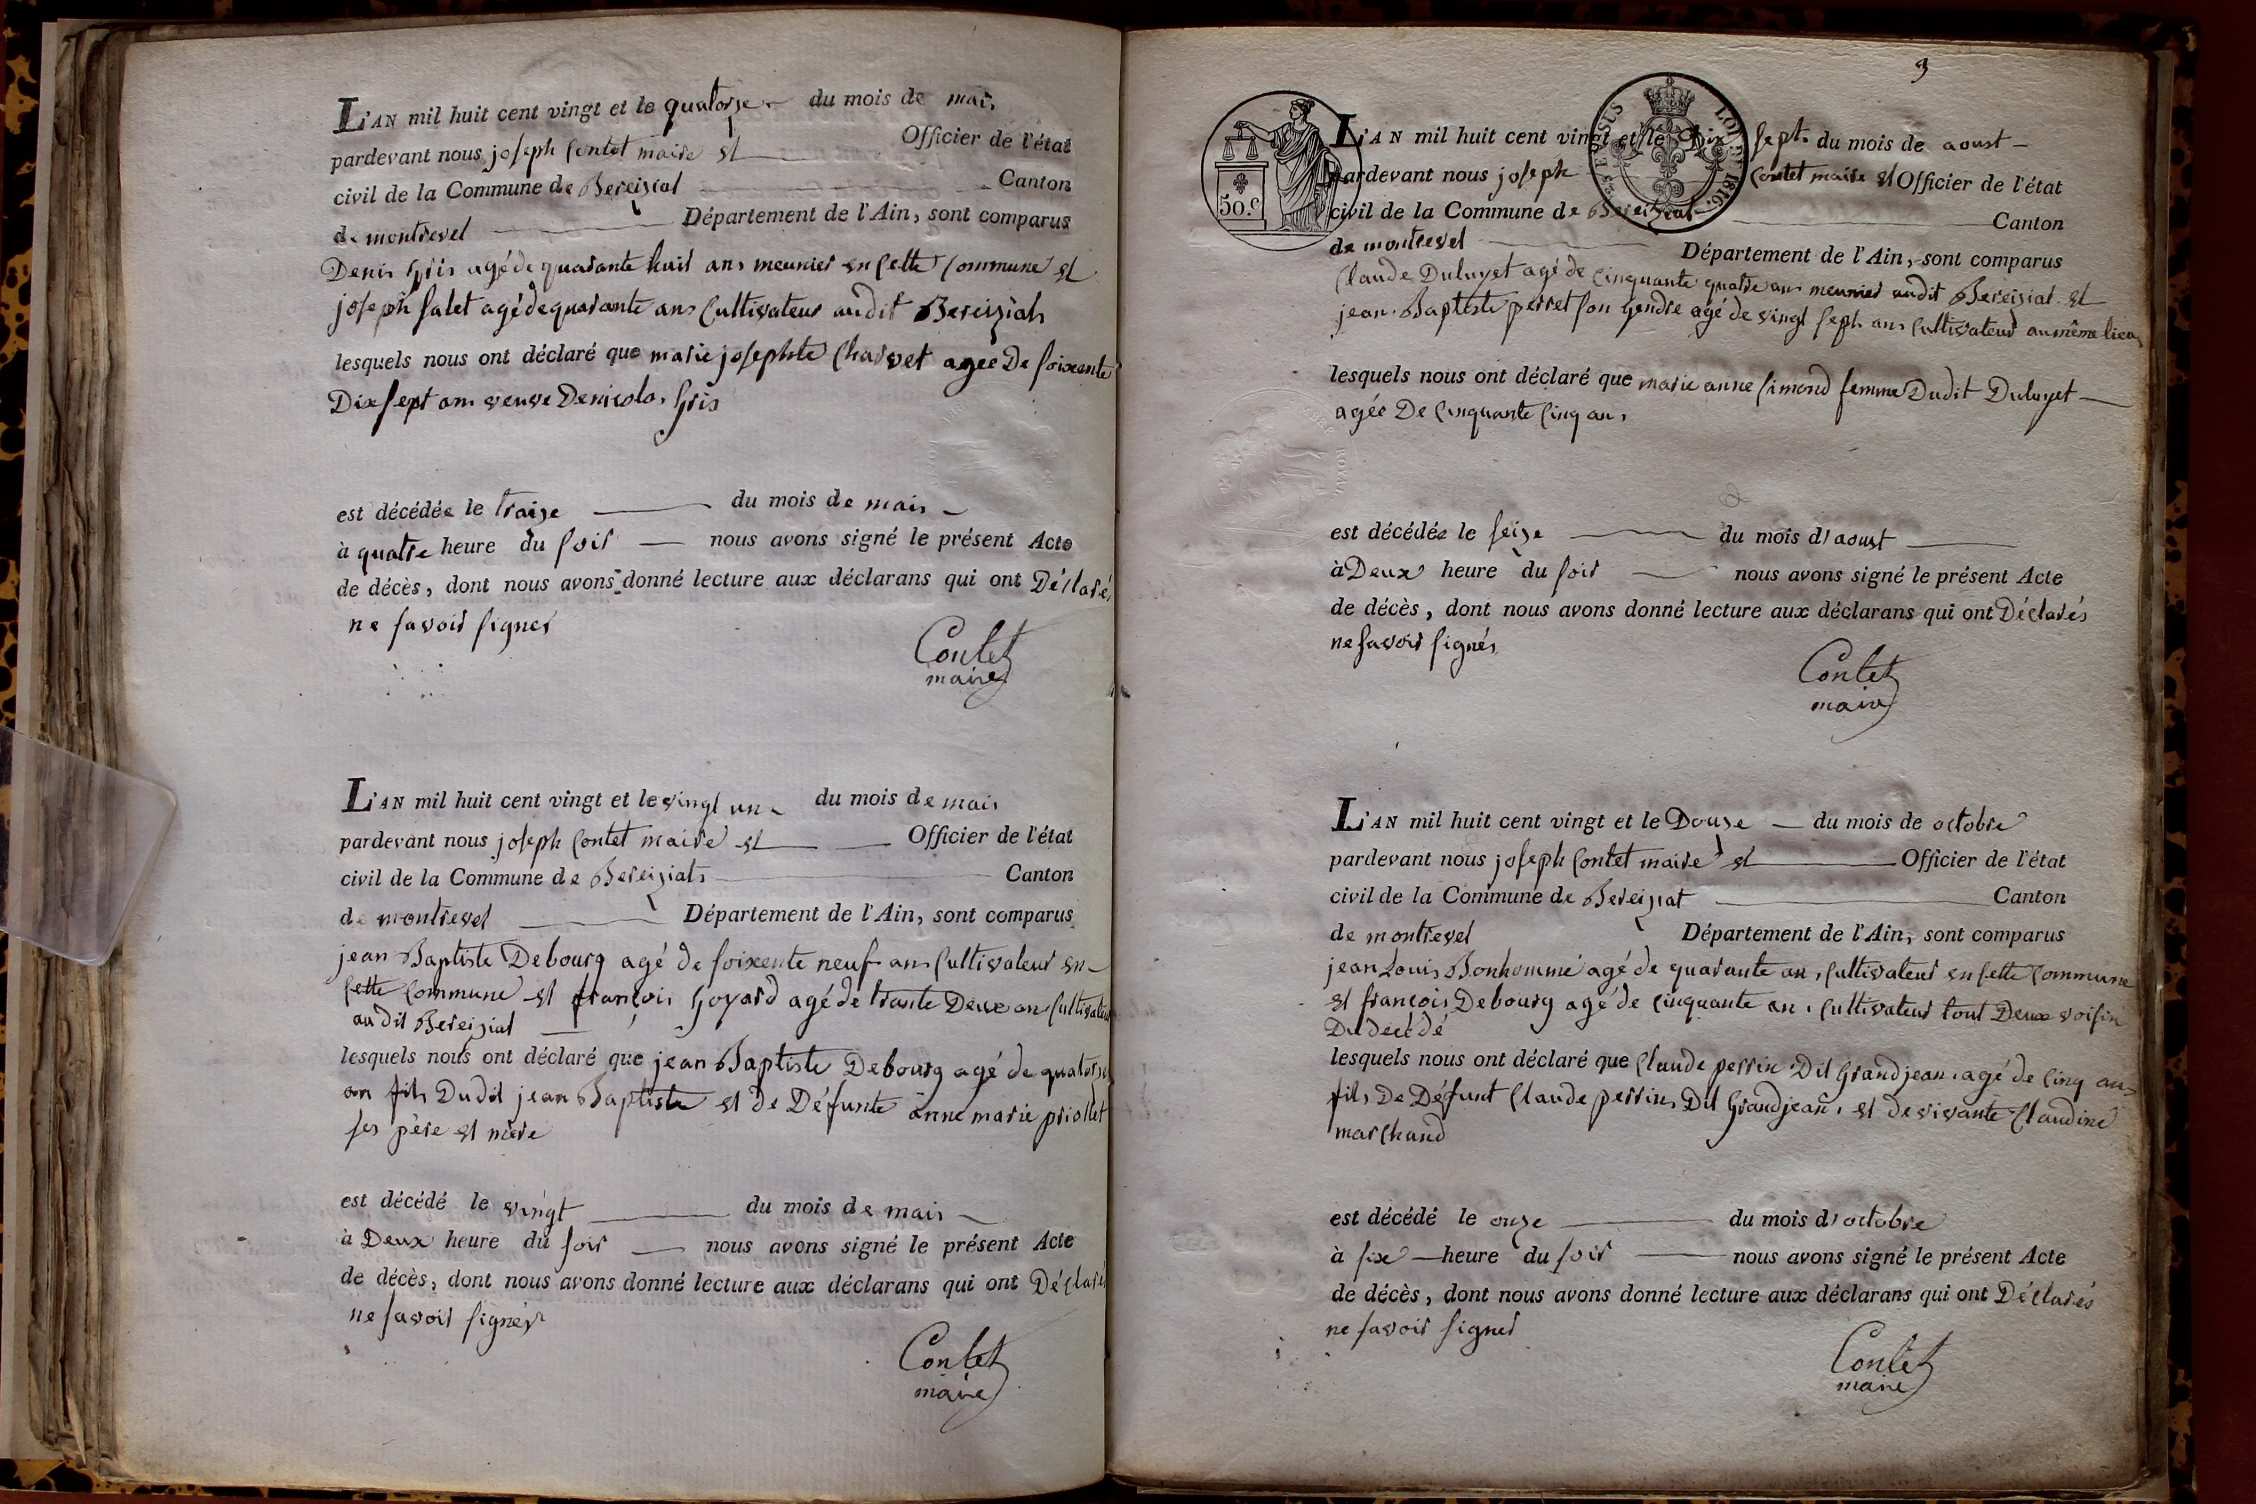 L'AN mil huit cent vingt et le quatorze du mois de mais
pardevant nous joseph Contet maire et Officier de l'état
civil de la Commune de Bereiziat Canton
de montrevel Département de l'Ain, sont comparus
Denis Gris agé de quarante huit ans meunier en cette Commune et
joseph salet agé de quarante ans Cultivateur audit Bereiziats
lesquels nous ont déclaré que marie josephte Charvet agée De soixente
Dix sept ans veuve Denicolas Gris
est décédée le traize du mois de mais
à quatre heure du soir nous avons signé le présent Acte
de décès, dont nous avons donné lecture aux déclarans qui ont Déclarés
ne savoir signer
Contet
maire
L'AN mil huit cent vingt et le vingt un du mois de mais
pardevant nous joseph Contet maire et Officier de l'état
civil de la Commune de Bereiziats Canton
de montrevel Département de l'Ain, sont comparus
jean Baptiste Debourg agé de soixente neuf ans Cultivateur en
Cette Commune et françois Goyard agé de trante Deux an Cultivateur
audit Bereiziat
lesquels nous ont déclaré que jean Baptiste Debourg agé de quatorze
an fils Dudit jean Baptiste et de Défunte anne marie priollet
ses père et mère
est décédé le vingt du mois de mais
à Deux heure du soir nous avons signé le présent Acte
de décès, dont nous avons donné lecture aux déclarans qui ont Déclarés
ne savoir signér
Contet
maire
3
50.C
L'AN mil huit cent vingt et le Dix sept du mois de aoust
pardevant nous joseph Contet maire et Officier de l'état
civil de la Commune de Bereiziat Canton
de montrevel Département de l'Ain, sont comparus
Claude Duluyet agé de Cinquante quatre ans meunier audit Bereiziat et
jean Baptiste perret son Gendre agé de vingt sept ans Cultivateur au même lieu
lesquels nous ont déclaré que marie anne Simond femme Dudit Duluyet
agée De Cinquante Cinq ans
est décédée le seize du mois d'aoust
à Deux heure du soir nous avons signé le présent Acte
de décès, dont nous avons donné lecture aux déclarans qui ont Déclarés
ne savoir signés
Contet
maire
L'AN mil huit cent vingt et le Douze du mois de octobre
pardevant nous joseph Contet maire et Officier de l'état
civil de la Commune de Bereiziat Canton
de montrevel Département de l'Ain, sont comparus
jean Louis Bonhomme agé de quarante ans Cultivateur en Cette Commune
et françois Debourg agé de Cinquante ans Cultivateur tout Deux voisin
Du décédé
lesquels nous ont déclaré que Claude perrin Dit Grandjean agé de Cinq ans
fils De Défunt Claude perrin Dit Grandjean et de vivante Claudine
marchand
est décédé le onze du mois d'octobre
à six heure du soir nous avons signé le présent Acte
de décès, dont nous avons donné lecture aux déclarans qui ont Déclarés
ne savoir signer
Contet
maire